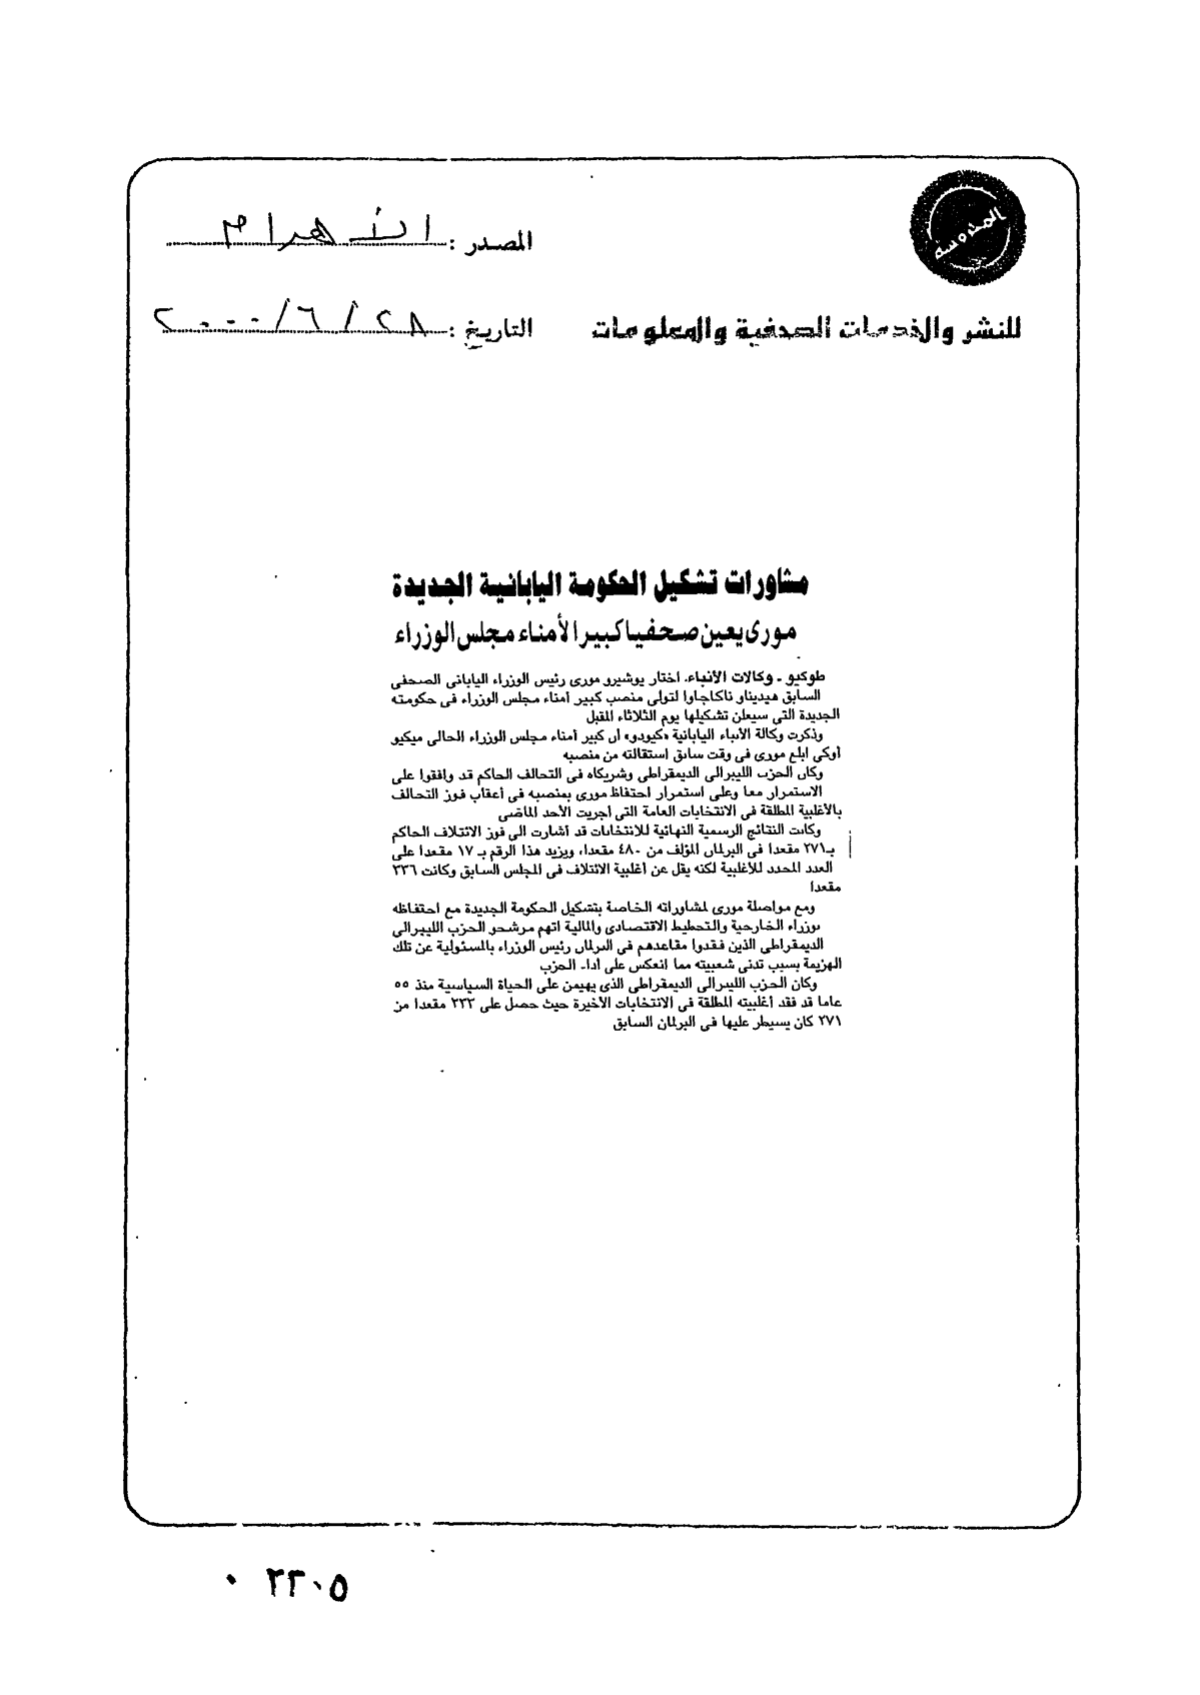 المحروسة
المصدر : الأهرام
للنشر والخدمات الصحفية والمعلومات
التاريخ : ٢٨ / ٦ / ٢٠٠٠
مشاورات تشكيل الحكومة اليابانية الجديدة
مورى يعين صحفيا كبيرا لأمناء مجلس الوزراء
طوكيو ـ وكالات الأنباء. اختار يوشيرو مورى رئيس الوزراء اليابانى الصحفى
السابق هيديناو ناكاجاوا لتولى منصب كبير أمناء مجلس الوزراء فى حكومته
الجديدة التى سيعلن تشكيلها يوم الثلاثاء المقبل
وذكرت وكالة الأنباء اليابانية «كيودو» أن كبير أمناء مجلس الوزراء الحالى ميكيو
أوكى ابلغ مورى فى وقت سابق استقالته من منصبه
وكان الحزب الليبرالى الديمقراطى وشريكاه فى التحالف الحاكم قد وافقوا على
الاستمرار معا وعلى استمرار احتفاظ مورى بمنصبه فى أعقاب فوز التحالف
بالأغلبية المطلقة فى الانتخابات العامة التى أجريت الأحد الماضى
وكانت النتائج الرسمية النهائية للانتخابات قد أشارت الى فوز الائتلاف الحاكم
بـ٢٧١ مقعدا فى البرلمان المؤلف من ٤٨٠ مقعدا، ويزيد هذا الرقم بـ ١٧ مقعدا على
العدد المحدد للأغلبية لكنه يقل عن أغلبية الائتلاف فى المجلس السابق وكانت ٣٣٦
مقعدا
ومع مواصلة مورى لمشاوراته الخاصة بتشكيل الحكومة الجديدة مع احتفاظه
بوزراء الخارجية والتخطيط الاقتصادى والمالية اتهم مرشحو الحزب الليبرالى
الديمقراطى الذين فقدوا مقاعدهم فى البرلمان رئيس الوزراء بالمسئولية عن تلك
الهزيمة بسبب تدنى شعبيته مما انعكس على اداء الحزب
وكان الحزب الليبرالى الديمقراطى الذى يهيمن على الحياة السياسية منذ ٥٥
عاما قد فقد أغلبيته المطلقة فى الانتخابات الأخيرة حيث حصل على ٢٣٣ مقعدا من
٢٧١ كان يسيطر عليها فى البرلمان السابق
٠ ٢٣٠٥